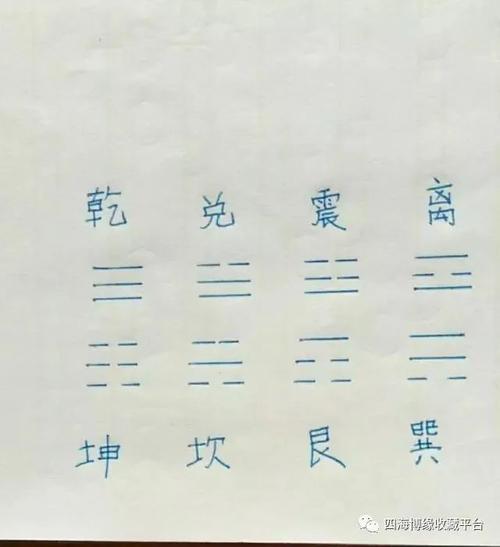 乾 兑 震 离
坤 坎 艮 巽
四海博缘收藏平台